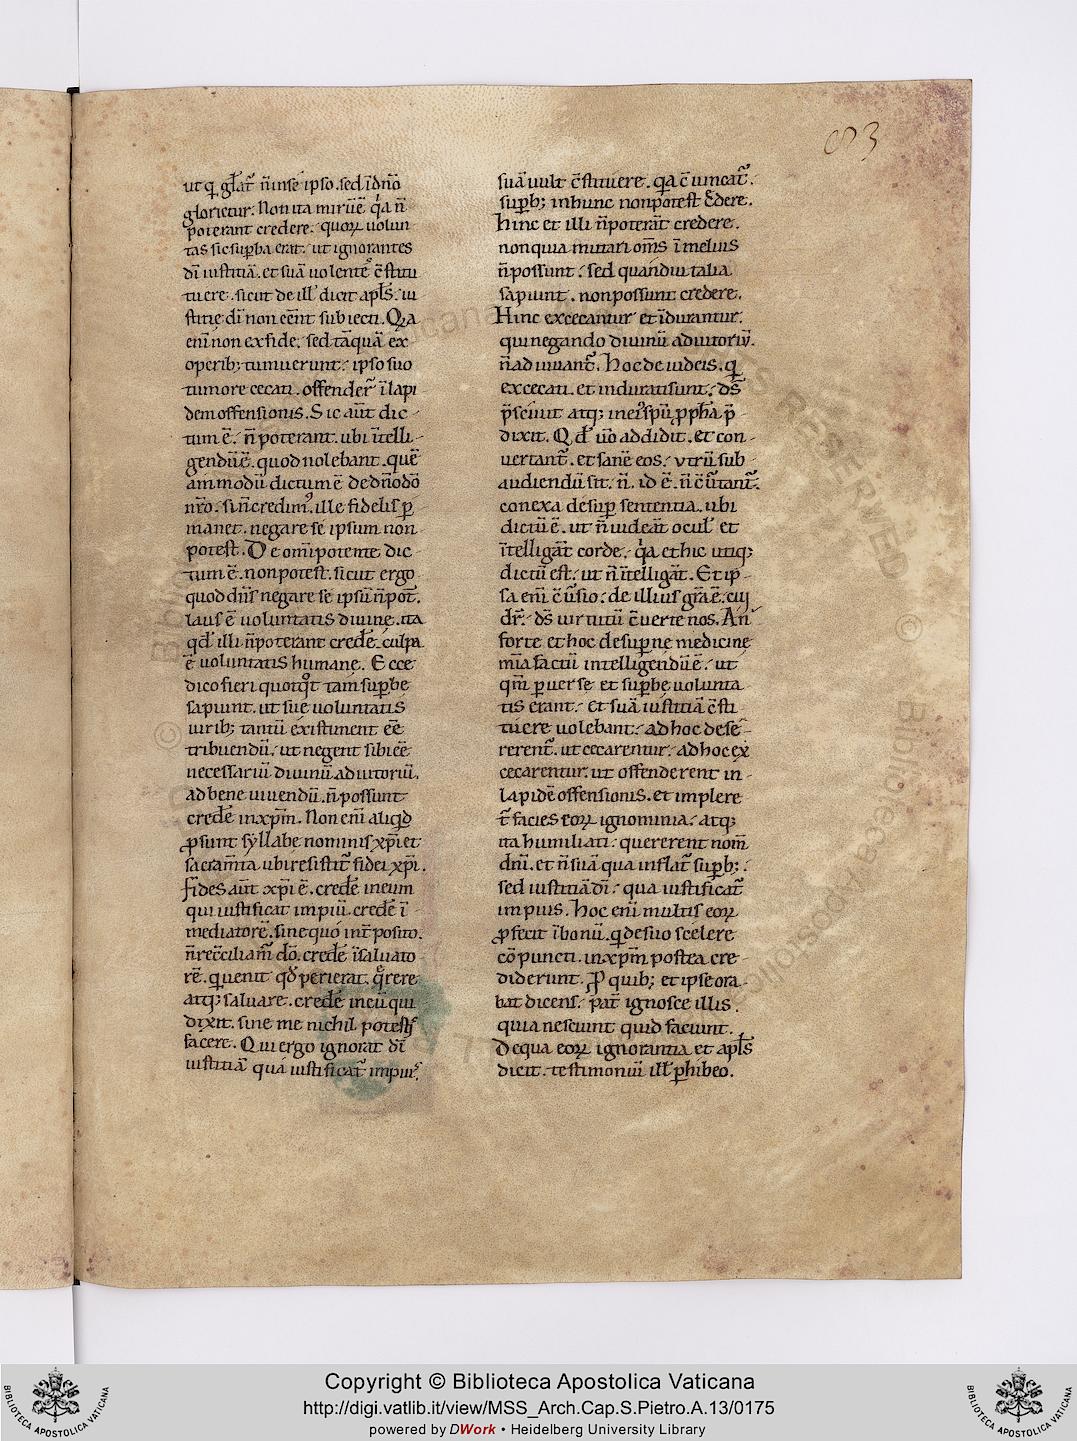 83
ut q̇ gl̄at᷑ n̄ in se ipso. sed ī dn̄o
glorietur. Non ita mirū ē q̇a n̄
poterant credere. quoꝝ volun
tas sic supba erat. ut ignorantes
dī iustitiā. et suā uolentes c̄stitu
tuere. sicut de ill' dicit apl̄s. iu
stitie dī non ceēnt subiecti. Q̇a
enī non ex fide. sed tāquā ex
operib; tumuerunt. ipso suo
tumore cecati. offender̄ ī lapi
dem offensionis. Sic aūt dic-
tum ē. n̄ poterant. ubi ītelli-
gendū ē. quod nolebant. quē
ammodū dictum ē de dn̄o dō
nr̄o. si n̄ credim᷒. ille fidelis p̄
manet. negare se ipsum non
potest. De omīpotente dic-
tum ē. non potest. sicut ergo
quod dn̄s negare se ipsū n̄ pot᷑.
laus ē voluntatis diuine. ita
qd̄ illi n̄ poterant crede᷑. culpa
ē uoluntatis humane. Ecce
dico fieri quotq̊t tam supbe
sapiunt. ut sue uoluntatis
uirib; tantū existiment eē
tribuendū. ut negent sibi eē
necessariū diuinū adiutoriū.
ad bene uiuendū. n̄ possunt
crede᷑ in xp̄m. Non enī aliqd̄
ꝓsunt syllabe nominis xp̄i et
sacram̄ta ubi resistit᷑ fidei xp̄i.
Fides aūt xp̄i ē. crede᷑ in eum
qui iustificat impiū. crede᷑ ī
mediatore᷑. sine quo int᷑posito.
n̄ rec̄ciliam᷑ dō. crede᷑ ī saluato
re᷑. q̇ uenit qd̄ perierat. q̄rere
atq; saluare. crede᷑ in eū qui
dixit. sine me nichil potestis
facere. Qui ergo ignorat dī
iustitiā qua iustificat᷑ impius.
suā uult c̄stituere. qua c̄uincat᷑.
supb; in hunc non potest c̄dere.
Hinc et illi n̄ poterāt credere.
non quia mutari om̄s ī melius
n̄ possunt. sed quandiu talia
sapiunt. non possunt credere.
Hinc excecantur et īdurantur.
qui negando diuinū adiutoriū.
n̄ adiuuant᷑. Hoc de iudeis. q̇
excecati. et indurati sunt. ds̄
p̄sciuit atq; in ei᷒ spū ꝓph̄a p̄
dixit. Qd̄ uō addidit. et con-
uertant᷑. et sane᷑ eos. utrū sub-
audiendū sit. n̄. id ē. n̄ c̄ūtant᷑.
conexa desup sententia. ubi
dictū ē. ut n̄ uideāt ocul' et
ītelligāt corde. q̇a et hic utiq;
dictū est. ut n̄ ītelligāt. Et ip-
sa enī c̄ūsio. de illius gr̄a ē. cui
dr̄. ds̄ uirtutū c̄uerte nos. An
forte et hoc de supne medicine
mīa factū intelligendū ē. ut
qm̄ puerse et supbe uolunta
tis erant. et suā iustitiā c̄sti
tuere uolebant. ad hoc dese-
rerent᷑. ut cecarentur. ad hoc ex
cecarentur. ut offenderent in-
lapidē offensionis. et implere
t᷑ facies eoꝝ ignominia. atq;
ita humiliati. quererent nom̄
dnī. et n̄ suā qua inflat᷑ supb;.
sed iustitiā dī. qua iustificat᷑
impius. Hoc enī multis eoꝝ
ꝓfecit ī bonū. q̇ de suo scelere
cōpuncti. in xp̄m postea cre-
diderunt. Ꝓ quib; et ipse ora-
bat dicens. pat᷑ ignosce illis.
quia nesciunt quid faciunt.
De qua eoꝝ ignorantia et apl̄s
dicit. testimoniū ill' phibeo.
Copyright © Biblioteca Apostolica Vaticana
http://digi.vatlib.it/view/MSS_Arch.Cap.S.Pietro.A.13/0175
powered by DWork • Heidelberg University Library
BIBLIOTECA APOSTOLICA VATICANA
BIBLIOTECA APOSTOLICA VATICANA